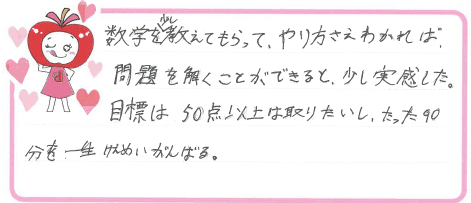 数学を少し教えてもらって、やり方さえわかれば、
問題を解くことができると、少し実感した。
目標は50点以上は取りたいし、たった90
分を一生けんめいがんばる。